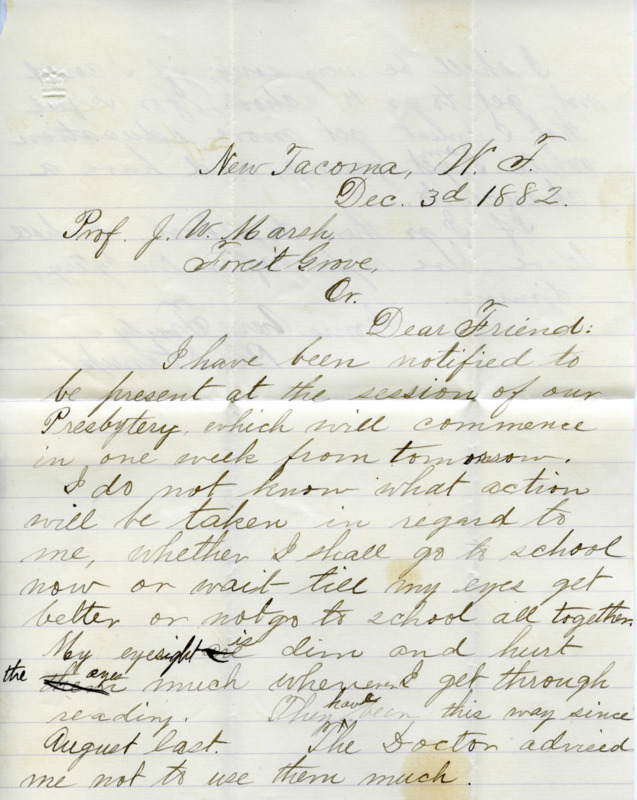 New Tacoma, W. T.
Dec. 3d 1882.
Prof. J. W. Marsh
Forest Grove,
Or.
Dear Friend:
I have been notified to
be present at the session of our
Presbytery, which will commence
in one week from tomorrow.
I do not know what action
will be taken in regard to
me, whether I shall go to school
now or wait till my eyes get
better or not go to school all together.
My eyesight is dim and hurt
the eyes much whenever I get through
reading. They have been this way since
August last. The Doctor advised
me not to use them much.